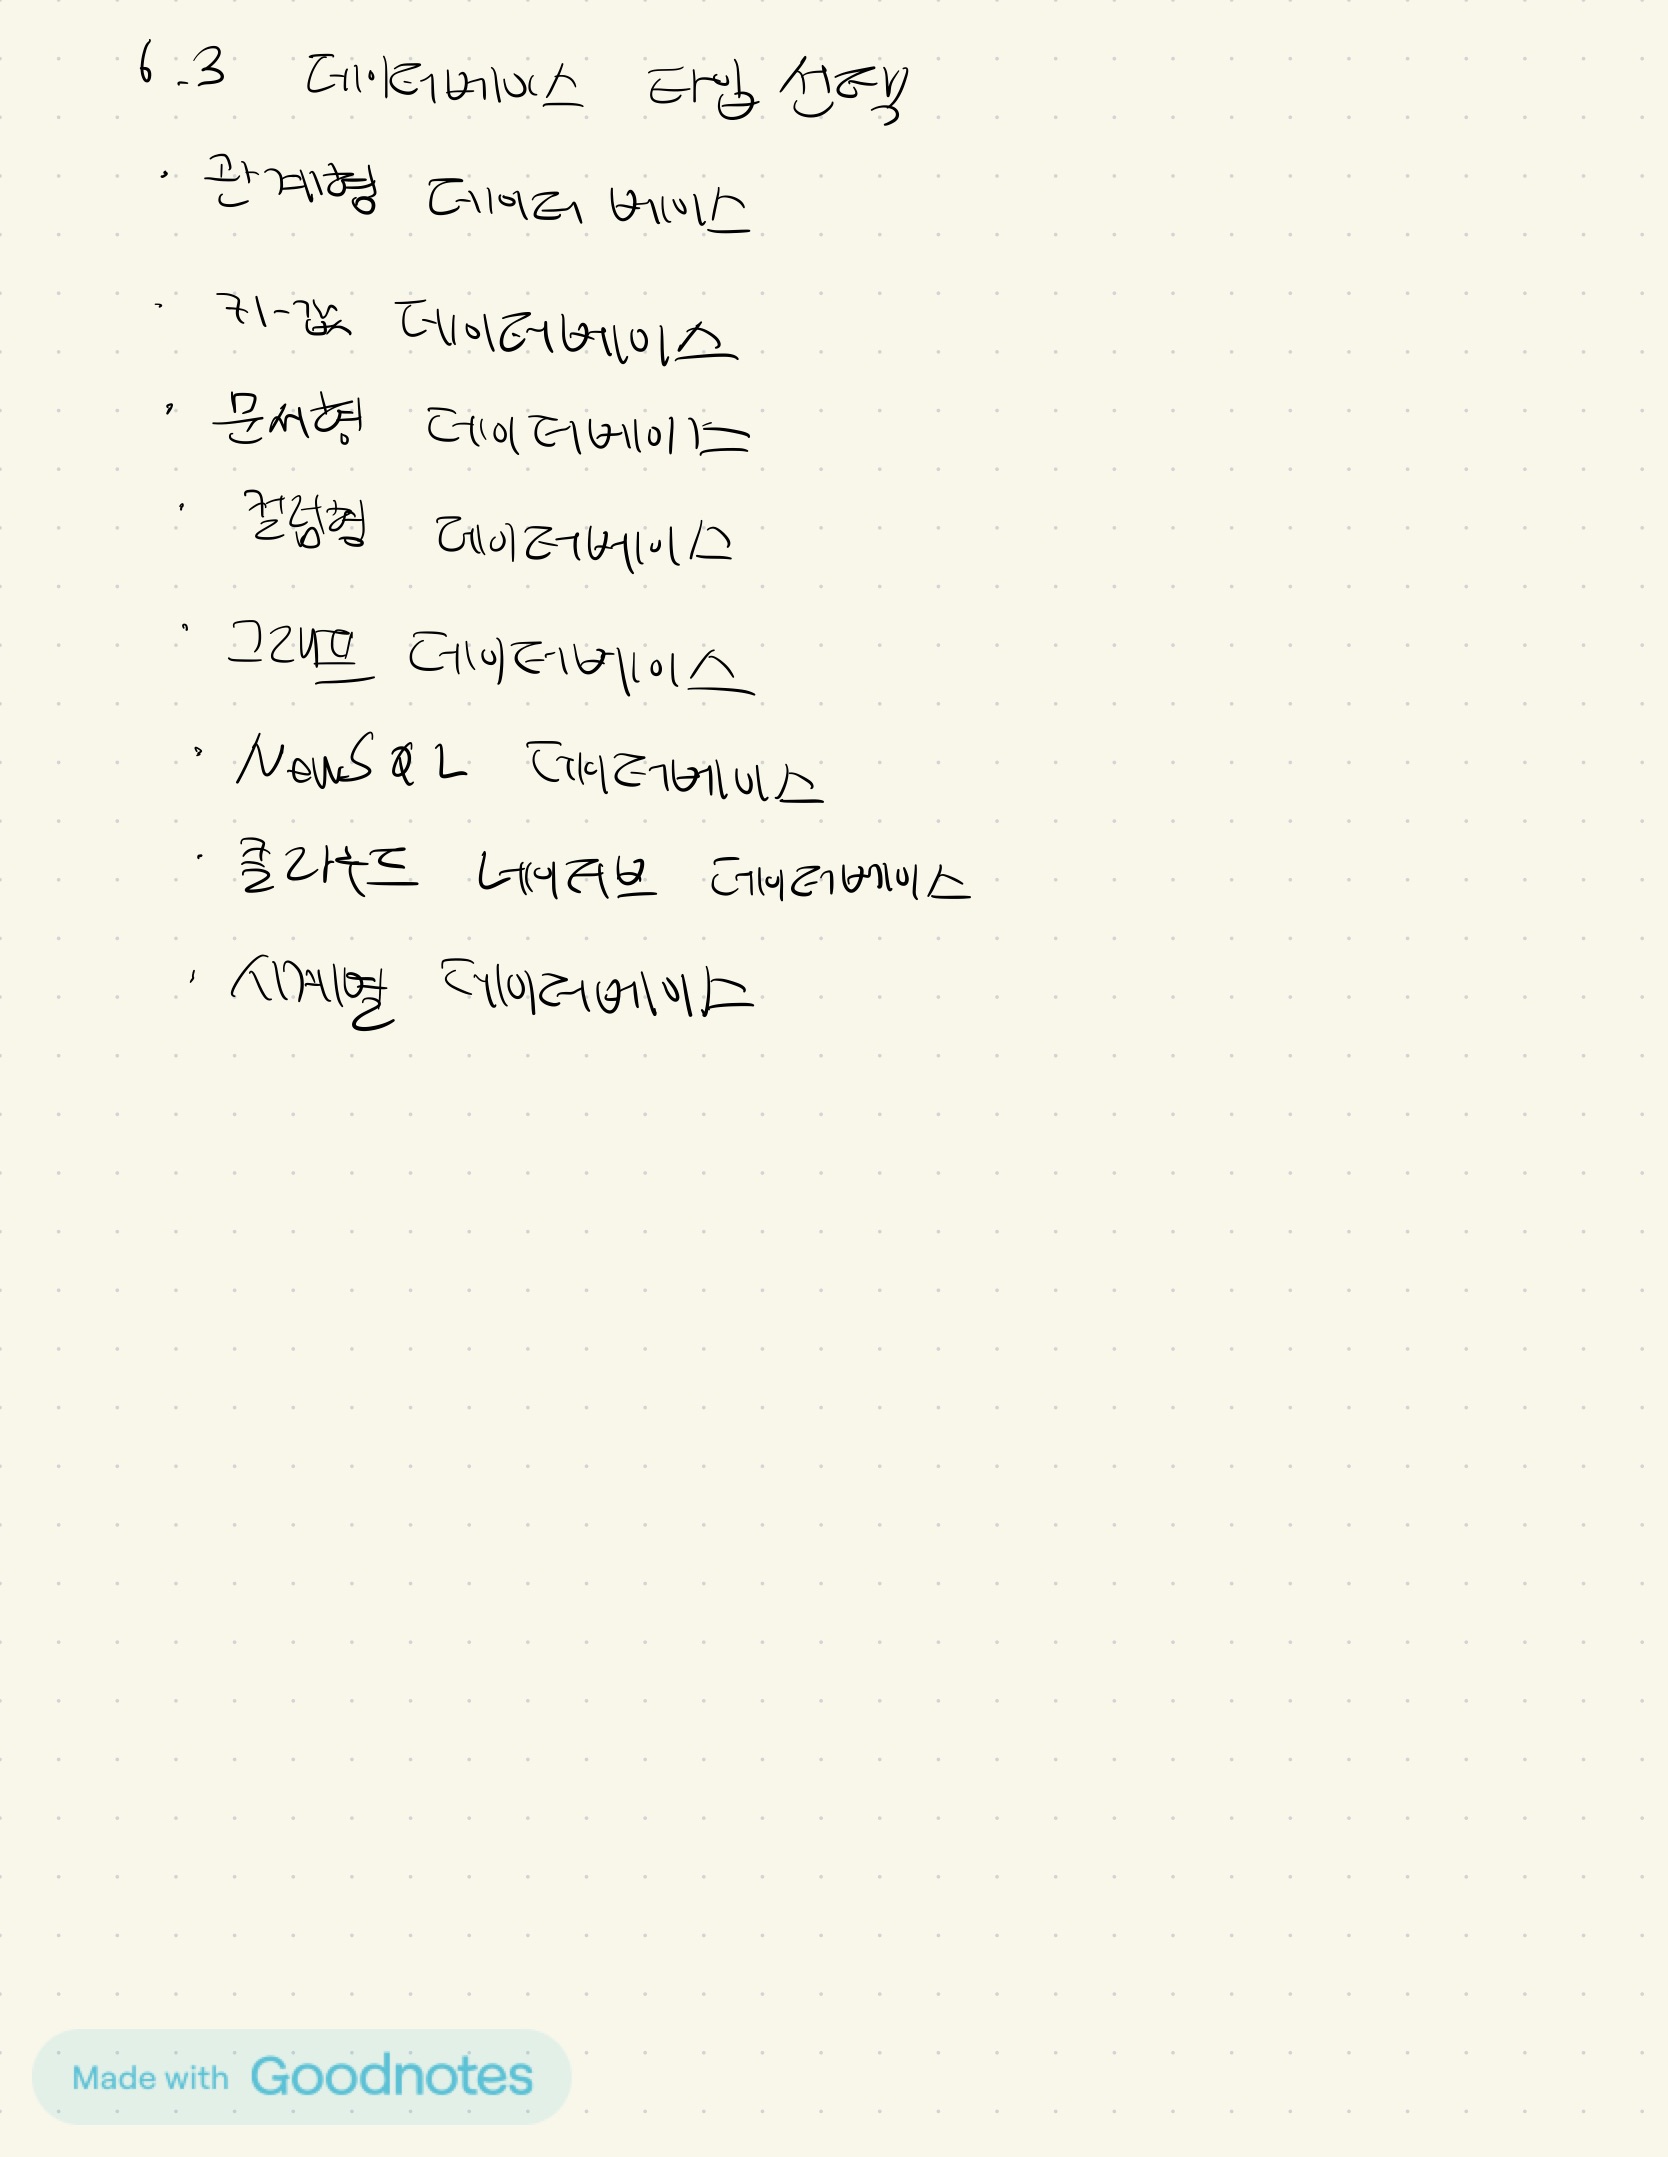 6.3 데이터베이스 타입 선택
· 관계형 데이터 베이스
· 키-값 데이터베이스
· 문서형 데이터베이스
· 컬럼형 데이터베이스
· 그래프 데이터베이스
· NewSQL 데이터베이스
· 클라우드 네이티브 데이터베이스
· 시계열 데이터베이스
Made with Goodnotes